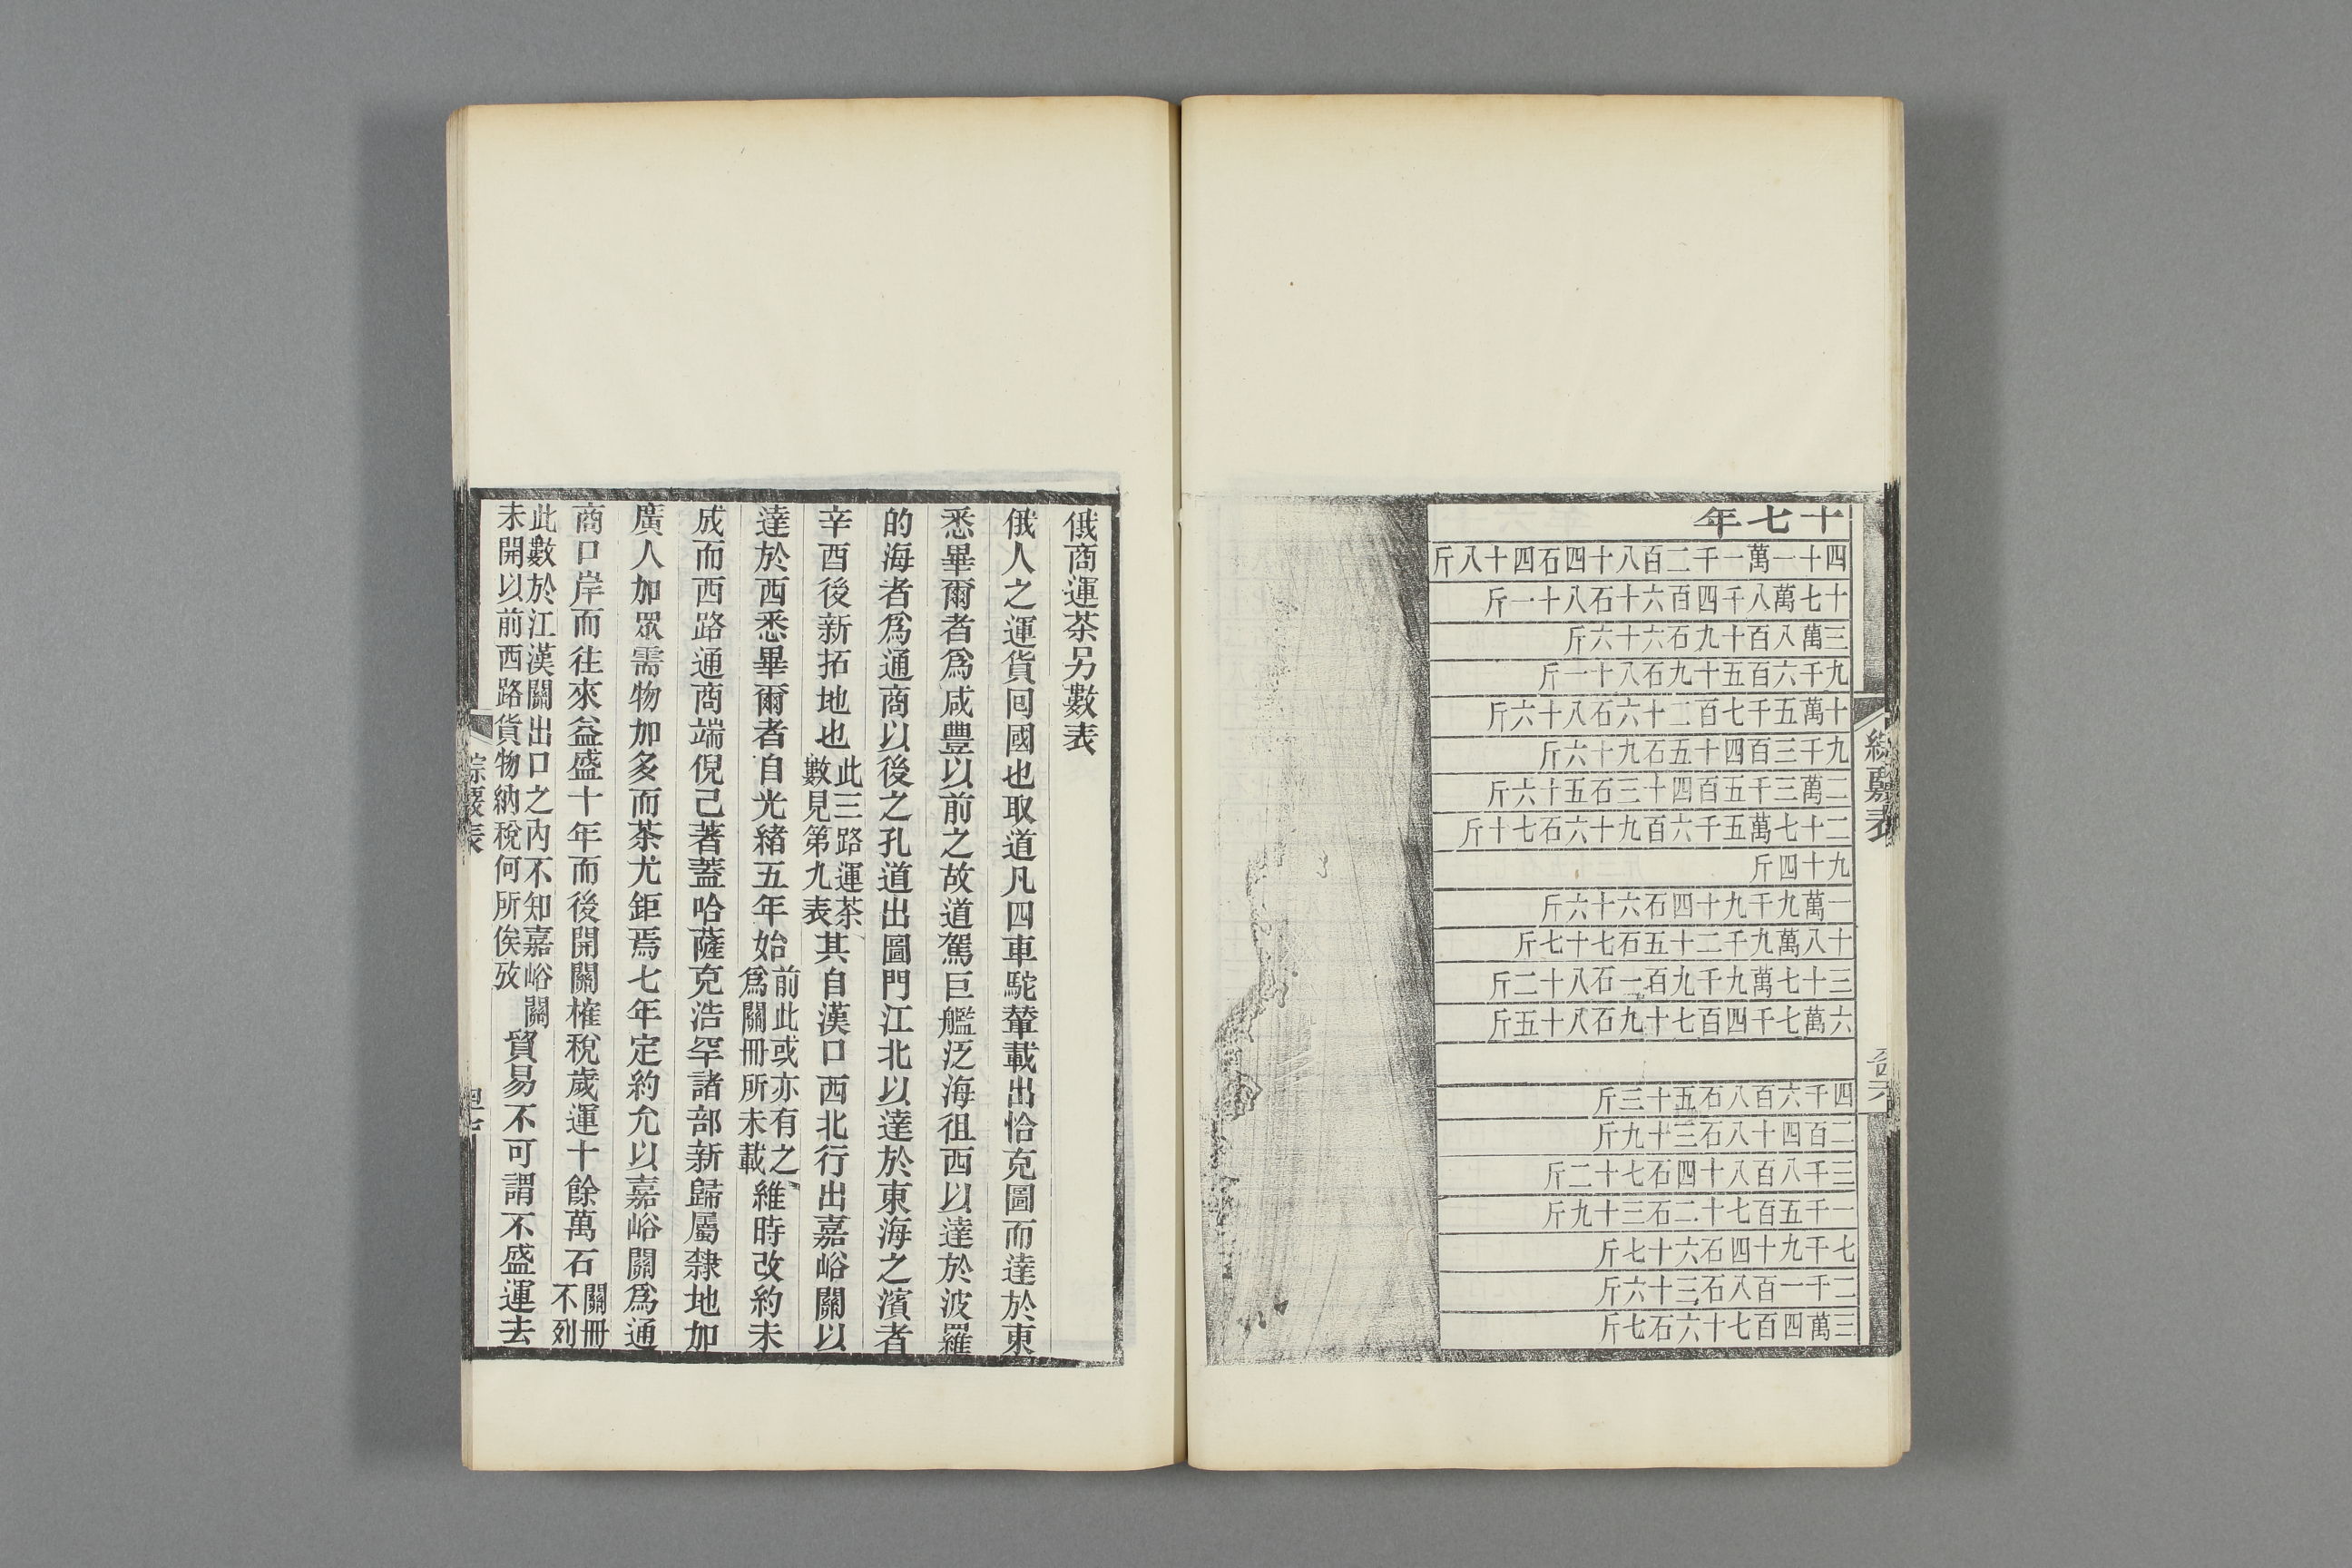 十七年
四十一萬一千二百八十四石四十八斤
十七萬八千四百六十石八十一斤
三萬八百十九石六十六斤
九千六百五十九石八十一斤
十萬五千七百二十六石八十六斤
九千三百四十五石九十六斤
二萬三千五百四十三石五十六斤
二十七萬五千六百九十六石七十斤
九十四斤
一萬九千九十四石六十六斤
十八萬九千二十五石七十七斤
三十七萬九千九百一石八十二斤
六萬七千四百七十九石八十五斤
四千六百八石五十三斤
二百四十八石三十九斤
三千八百八十四石七十二斤
一千五百七十二石三十九斤
七千九十四石六十七斤
二千一百八石三十六斤
三萬四百七十六石七斤
綜覈表
俄商運茶另數表
俄人之運貨囘國也取道凡四車駝輦載出恰克圖而達於東
悉畢爾者爲咸豐以前之故道駕巨艦泛海徂西以達於波羅
的海者爲通商以後之孔道出圖門江北以達於東海之濱者
辛酉後新拓地也此三路運茶數見第九表其自漢口西北行出嘉峪關以
達於西悉畢爾者自光緒五年始前此或亦有之爲關冊所未載維時改約未
成而西路通商端倪已著蓋哈薩克浩罕諸部新歸屬隸地加
廣人加眾需物加多而茶尤鉅焉七年定約允以嘉峪關爲通
商口岸而往來益盛十年而後開關榷稅歲運十餘萬石關冊不列
此數於江漢關出口之內不知嘉峪關未開以前西路貨物納稅何所俟攷貿易不可謂不盛運去
綜覈表